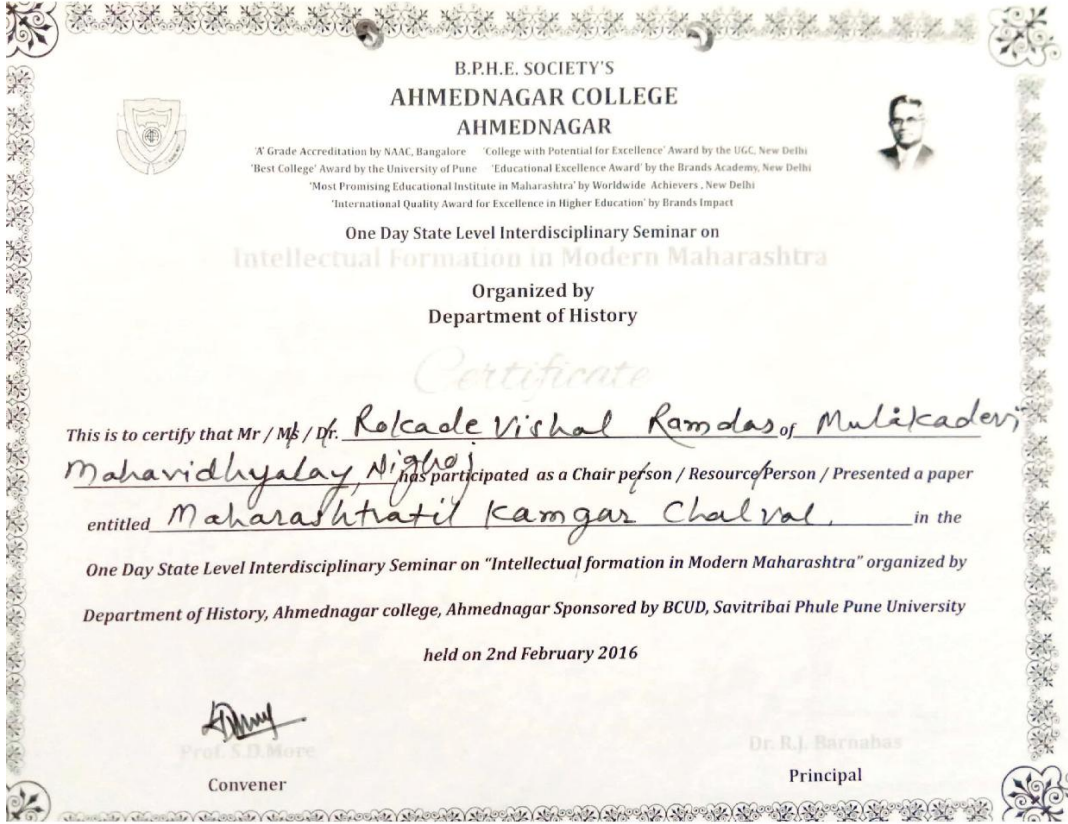 B.P.H.E. SOCIETY'S
AHMEDNAGAR COLLEGE
AHMEDNAGAR
'A' Grade Accreditation by NAAC, Bangalore 'College with Potential for Excellence' Award by the UGC, New Delhi
'Best College' Award by the University of Pune 'Educational Excellence Award' by the Brands Academy, New Delhi
'Most Promising Educational Institute in Maharashtra' by Worldwide Achievers, New Delhi
'International Quality Award for Excellence in Higher Education' by Brands Impact
One Day State Level Interdisciplinary Seminar on
Intellectual Formation in Modern Maharashtra
Organized by
Department of History
Certificate
This is to certify that Mr / Ms / Dr. Rokade Vishal Ramdas of Mulikadevi
Mahavidhyalay, Nighoj has participated as a Chair person / Resource Person / Presented a paper
entitled Maharashtratil Kamgar Chalval. in the
One Day State Level Interdisciplinary Seminar on "Intellectual formation in Modern Maharashtra" organized by
Department of History, Ahmednagar college, Ahmednagar Sponsored by BCUD, Savitribai Phule Pune University
held on 2nd February 2016
Prof. S.D.More
Convener
Dr. R.J. Barnabas
Principal